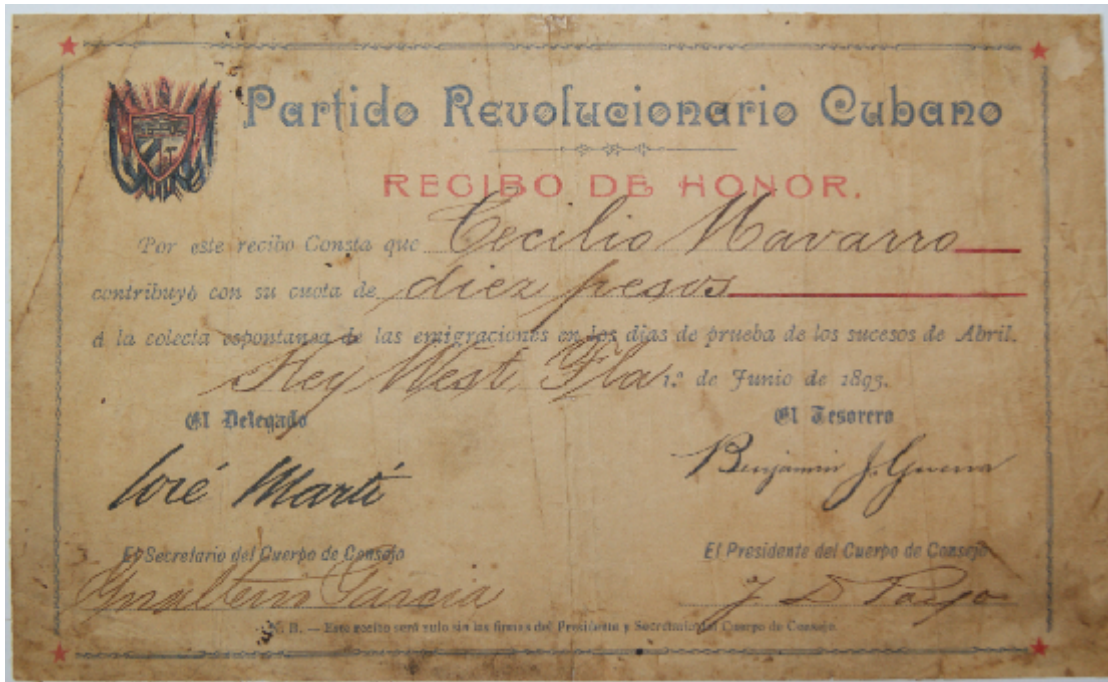 Partido Revolucionario Cubano
RECIBO DE HONOR.
Por este recibo Consta que Cecilio Navarro
contribuyó con su cuota de diez pesos
á la colecta espontanea de las emigraciones en los dias de prueba de los sucesos de Abril.
Key West, Fla 1.º de Junio de 1893.
El Delegado
El Tesorero
José Martí
Benjamin J. Guerra
El Secretario del Cuerpo de Consejo
El Presidente del Cuerpo de Consejo
Gualterio García
J D Poyo
N. B. — Este recibo será nulo sin las firmas del Presidente y Secretario del Cuerpo de Consejo.